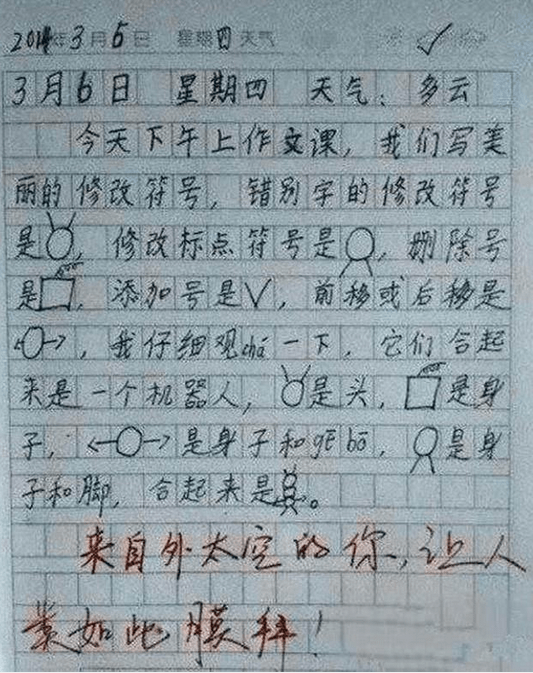 2014年3月6日 星期四 天气
3月6日 星期四 天气：多云
今天下午上作文课，我们写美
丽的修改符号，错别字的修改符号
是，修改标点符号是，删除号
是，添加号是V，前移或后移是
，我仔细观chá一下，它们合起
来是一个机器人，是头，是身
子，是身子和gē bō，是身
子和脚，合起来是。
来自外太空的你，让人
类如此膜拜！